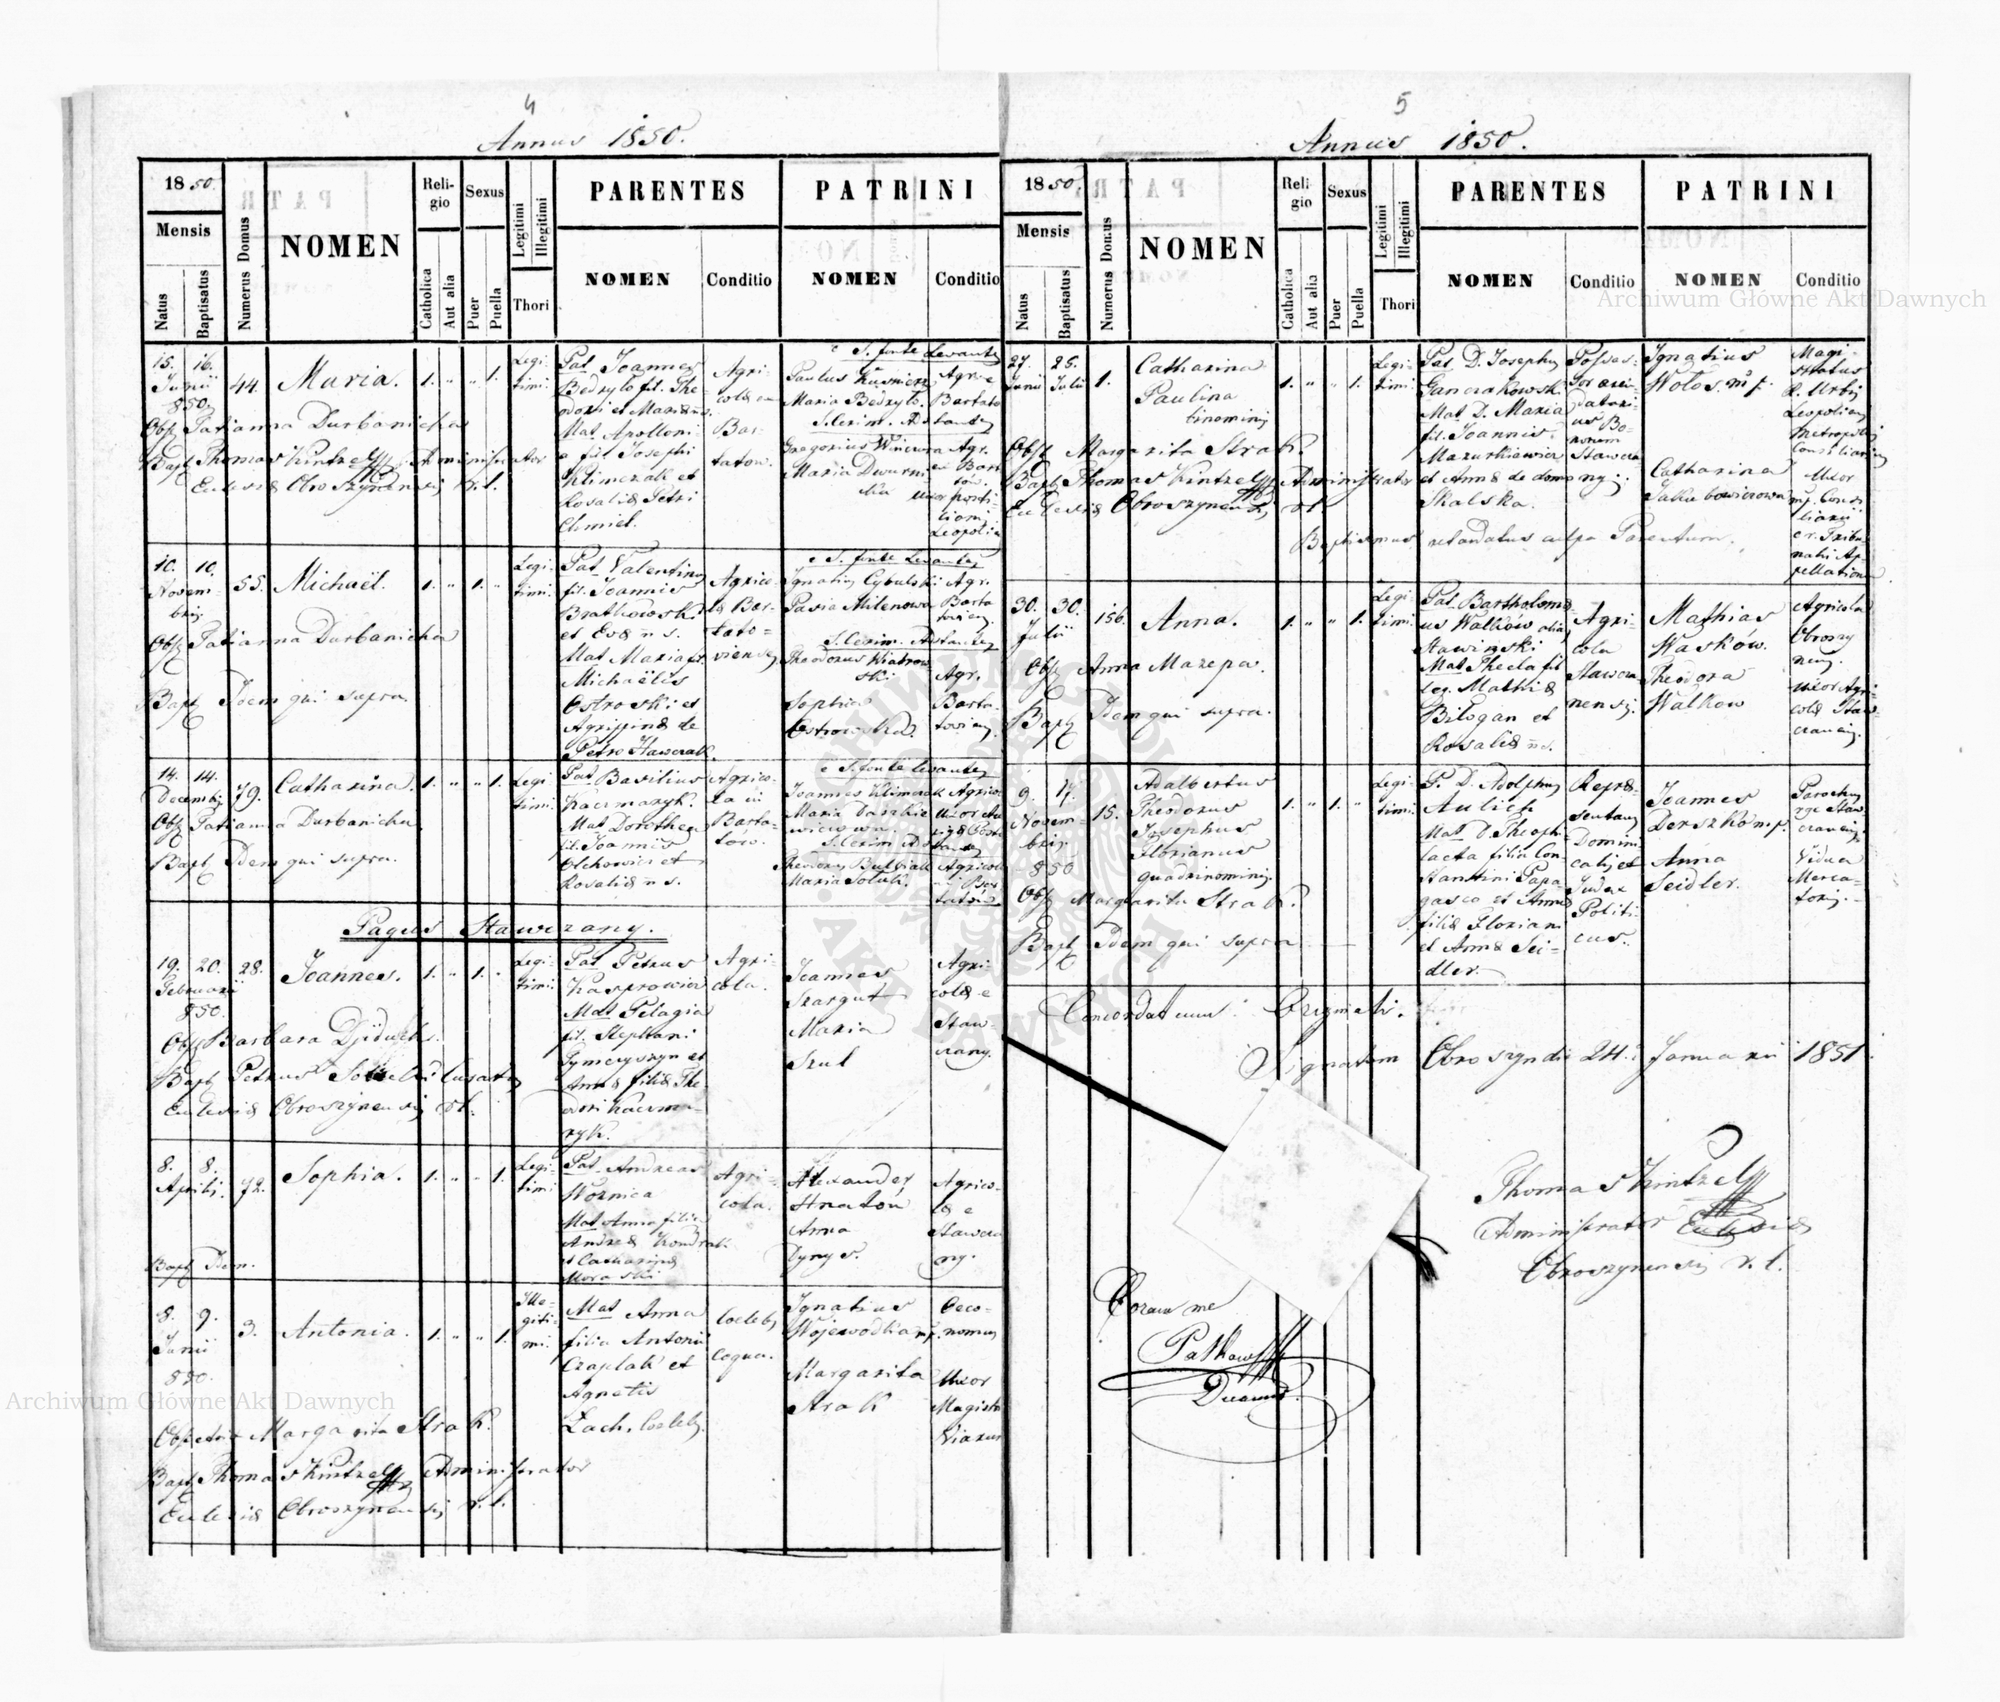 4
Annus 1850.
1850.
Mensis
Natus
Baptisatus
Numerus Domus
NOMEN
Religio
Catholica
Aut alia
Sexus
Puer
Puella
Legitimi
Illegitimi
Thori
PARENTES
NOMEN
Conditio
PATRINI
NOMEN
Conditio
15. Junii 850.
16.
44.
Maria.
1. " " 1.
Legi-
timi.
Pat Joannes
Bedryło fil. The-
odori et Mariæ n s.
Mat Apolloni-
a fil Josephi
Klimczak et
Rosaliæ Petri
Chmiel.
Agri-
colæ
Bar-
tatow.
e S. fonte Levantes
Paulus Kusnierz
Maria Bedryło.
Agr. e
Bartato
S. Cerim. Adstantes
Gregorius Winiowa
Maria Dwurni-
cka
Agr.
ex Bart
tów.
uxor
Leopoli
Obst Tatianna Durbanicha
Bapt Thomas Kintzel Administrator
Eclesiæ Obroszynensis r. l.
10. Novem-
bris
10.
55.
Michaël.
1. " 1. "
Legi-
timi.
Pat Valentinus
fil. Joannis
Bratkowski
et Evæ n s.
Mat Maria fil.
Michaëlis
Ostrowski et
Agrippinæ de
Petro Hawczak.
Agrico-
la Bar-
tato-
viensis
e S. fonte Levantes
Ignatius Cybulski
Pasia Milenowa
Agr.
Barta
toviens.
S. Cerim. Adstantes
Theodorus Wiatrow
ski
Sophia
Ostrowska.
Agr.
Barta-
toviens.
Obst Tatianna Durbanicha
Bapt Idem qui supra.
14. Decembris
14.
79.
Catharina.
1. " " 1.
Legi
timi.
Pat Basilius
Kaczmaryk.
Mat Dorothea
fil. Joannis
Olchowicz et
Rosaliæ n s.
Agrico-
la in
Barta-
tów.
e S. fonte Levantes
Joannes Klimczak
Maria Daszkie
wiczowa.
S. Cerim Adstantes
Theodorus
Maria Sołuk.
Agricola
Obst Tatianna Durbanicha
Bapt Idem qui supra.
Pagus Stawczany.
19. Februarii
850.
20.
28.
Joannes.
1. " 1. "
Legi-
timi.
Pat Petrus
Kasprowicz
Mat Pelagia
fil. Stephani
Tymczyszyn et
Annæ filiæ The-
odori Kaczma-
ryk.
Agri-
cola.
Joannes
Szargut
Maria
Szul
Agri-
colæ e
Staw-
czany.
Obst Barbara Dziduch.
Bapt Petrus Curatus
Eclesiæ Obroszynensis r. l.
8. Aprilis.
8.
72.
Sophia.
1. " " 1.
Legi-
timi
Pat Andreas
Woźnica
Mat Anna filia
Andreæ Kondrat
et Catharinæ
Morawski
Agri-
cola.
Alexander
Hnatów
Anna
Dynys.
Agrico-
læ e
Stawcza
ny.
Bapt Idem.
8. Junii
850.
9.
3.
Antonia.
1. " " 1.
Ille-
giti-
mi.
Mat Anna
filia Antonii
Czaplak et
Agnetis
Zach, Coelebs.
Coelebs
Coqua.
Ignatius
Wojewodka mp.
Margarita
Strak
Oeco-
nomus
Uxor
Magist
Obstetrix Margarita Strak.
Bapt Thomas Kintzel Administrator
Eclesiæ Obroszynensis r. l.
5
Annus 1850.
1850.
Mensis
Natus
Baptisatus
Numerus Domus
NOMEN
Religio
Catholica
Aut alia
Sexus
Puer
Puella
Legitimi
Illegitimi
Thori
PARENTES
NOMEN
Conditio
PATRINI
NOMEN
Conditio
27. Junii
25. Julii
1.
Catharina
Paulina
binominis
1. " " 1.
Legi
timi.
Pat D. Josephus
Ganczakowski
Mat D. Maria
fil. Joannis
Mazurkiewicz
et Annæ de domo
Skalska.
Posses-
sor
Bo-
norum
Stawcza
ny.
Ignatius
Wołos. mp.
Catharina
Jakubowiczowa mp.
Magi-
stratus
R. Urbis
Leopoliens
Metropolis
Consiliarius
Uxor
Consi
liarii
c. r. Tribu
nalis Ap-
pellationum
Obst Margarita Strak.
Bapt Thomas Kintzel Administrator
Eclesiæ Obroszynensis r. l.
Baptismus retardatus culpa Parentum.
30. Julii
30.
156.
Anna.
1. " " 1.
Legi-
timi.
Pat Bartholomæ-
us Walków alias
Stawinski
Mat Thecla fil
leg. Mathiæ
Bilogan et
Rosaliæ n s.
Agri-
cola
Stawcza
nensis.
Mathias
Wasków.
Theodora
Walkow
Agricola
Obroszy
nens.
Uxor Agri-
colæ Staw-
czanens.
Obst Anna Mazepa.
Bapt Idem qui supra.
9. Novem-
bris
850
17.
15.
Adalbertus
Theodorus
Josephus
Florianus
quadrinominis.
1. " 1. "
Legi-
timi.
P. D. Adolphus
Aulich
Mat D. Theoph.
lacta filia Con
stantini Papa-
gasco et Annæ
filiæ Floriani
et Annæ Sei-
dler.
Repræ-
sentans
Domini
calis et
Judex
Politi-
cus.
Joannes
Derszko mp.
Anna
Seidler.
Parochus
Staw-
czanens.
Vidua
Merca-
toris.
Obst Margarita Strak.
Bapt Idem qui supra
Concordat cum Originali.
Signatum Obroszyndie 24. Januarii 1851.
Thomas Kintzel
Administrator Eclesiæ
Obroszynensis r. l.
Coram me
Decanus.
Archiwum Główne Akt Dawnych
Archiwum Główne Akt Dawnych